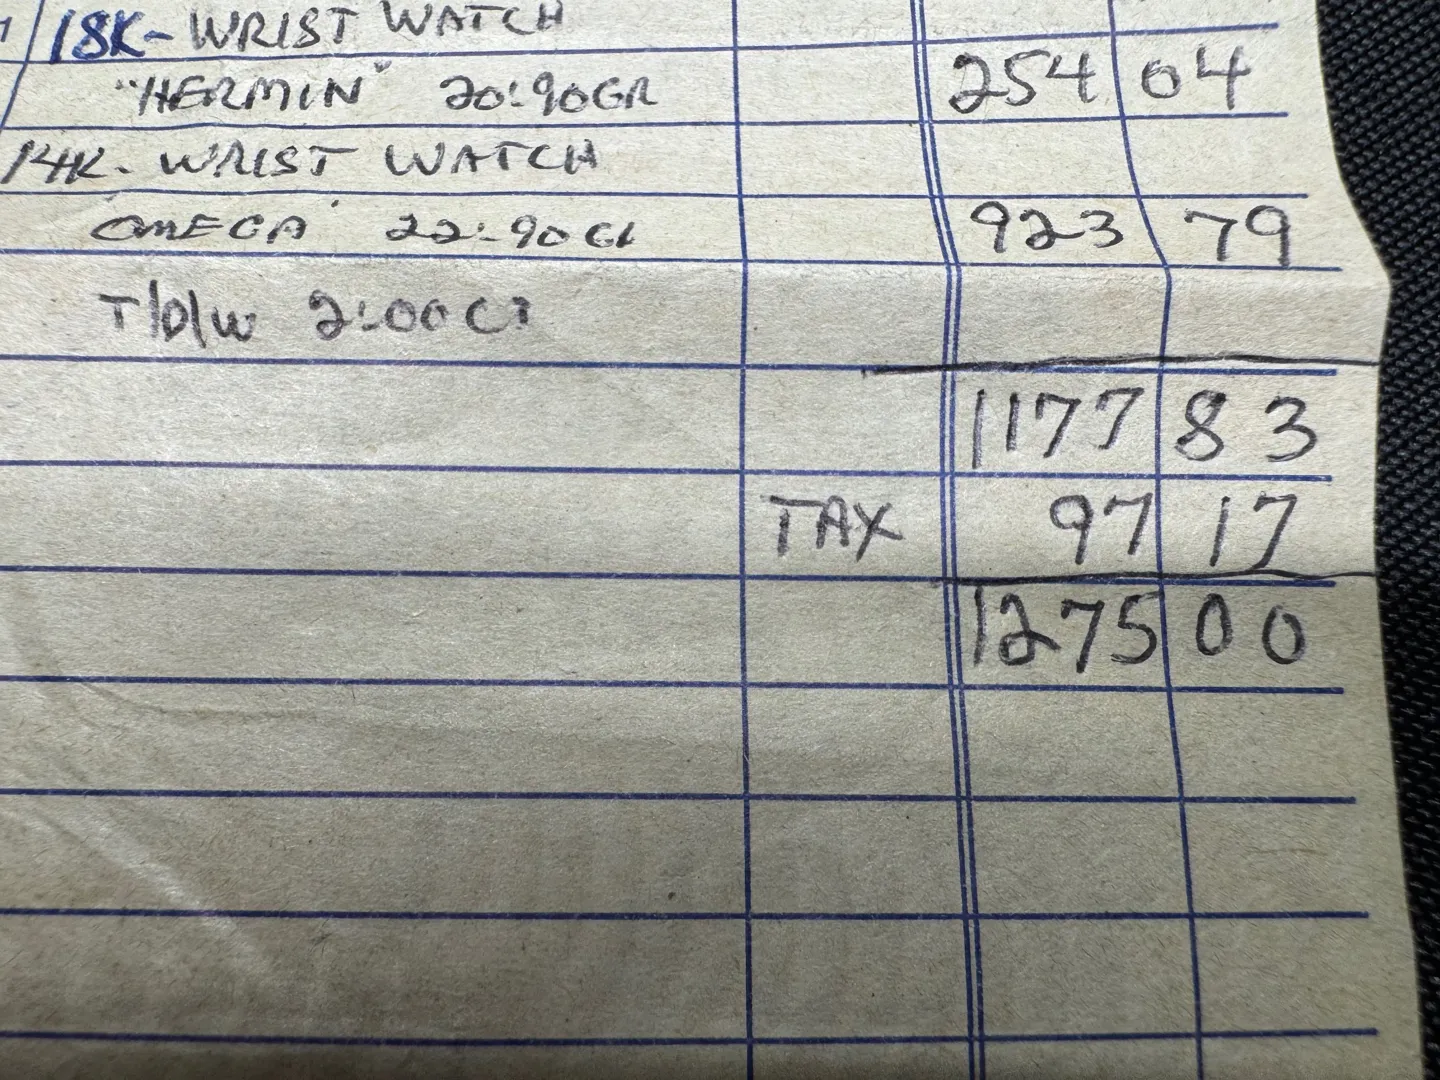 18K- WRIST WATCH
"HERMIN" 20:90GR 254 04
14K- WRIST WATCH
OMEGA 22:90GR 923 79
T/D/W 2:00CT
1177 83
TAX 97 17
1275 00